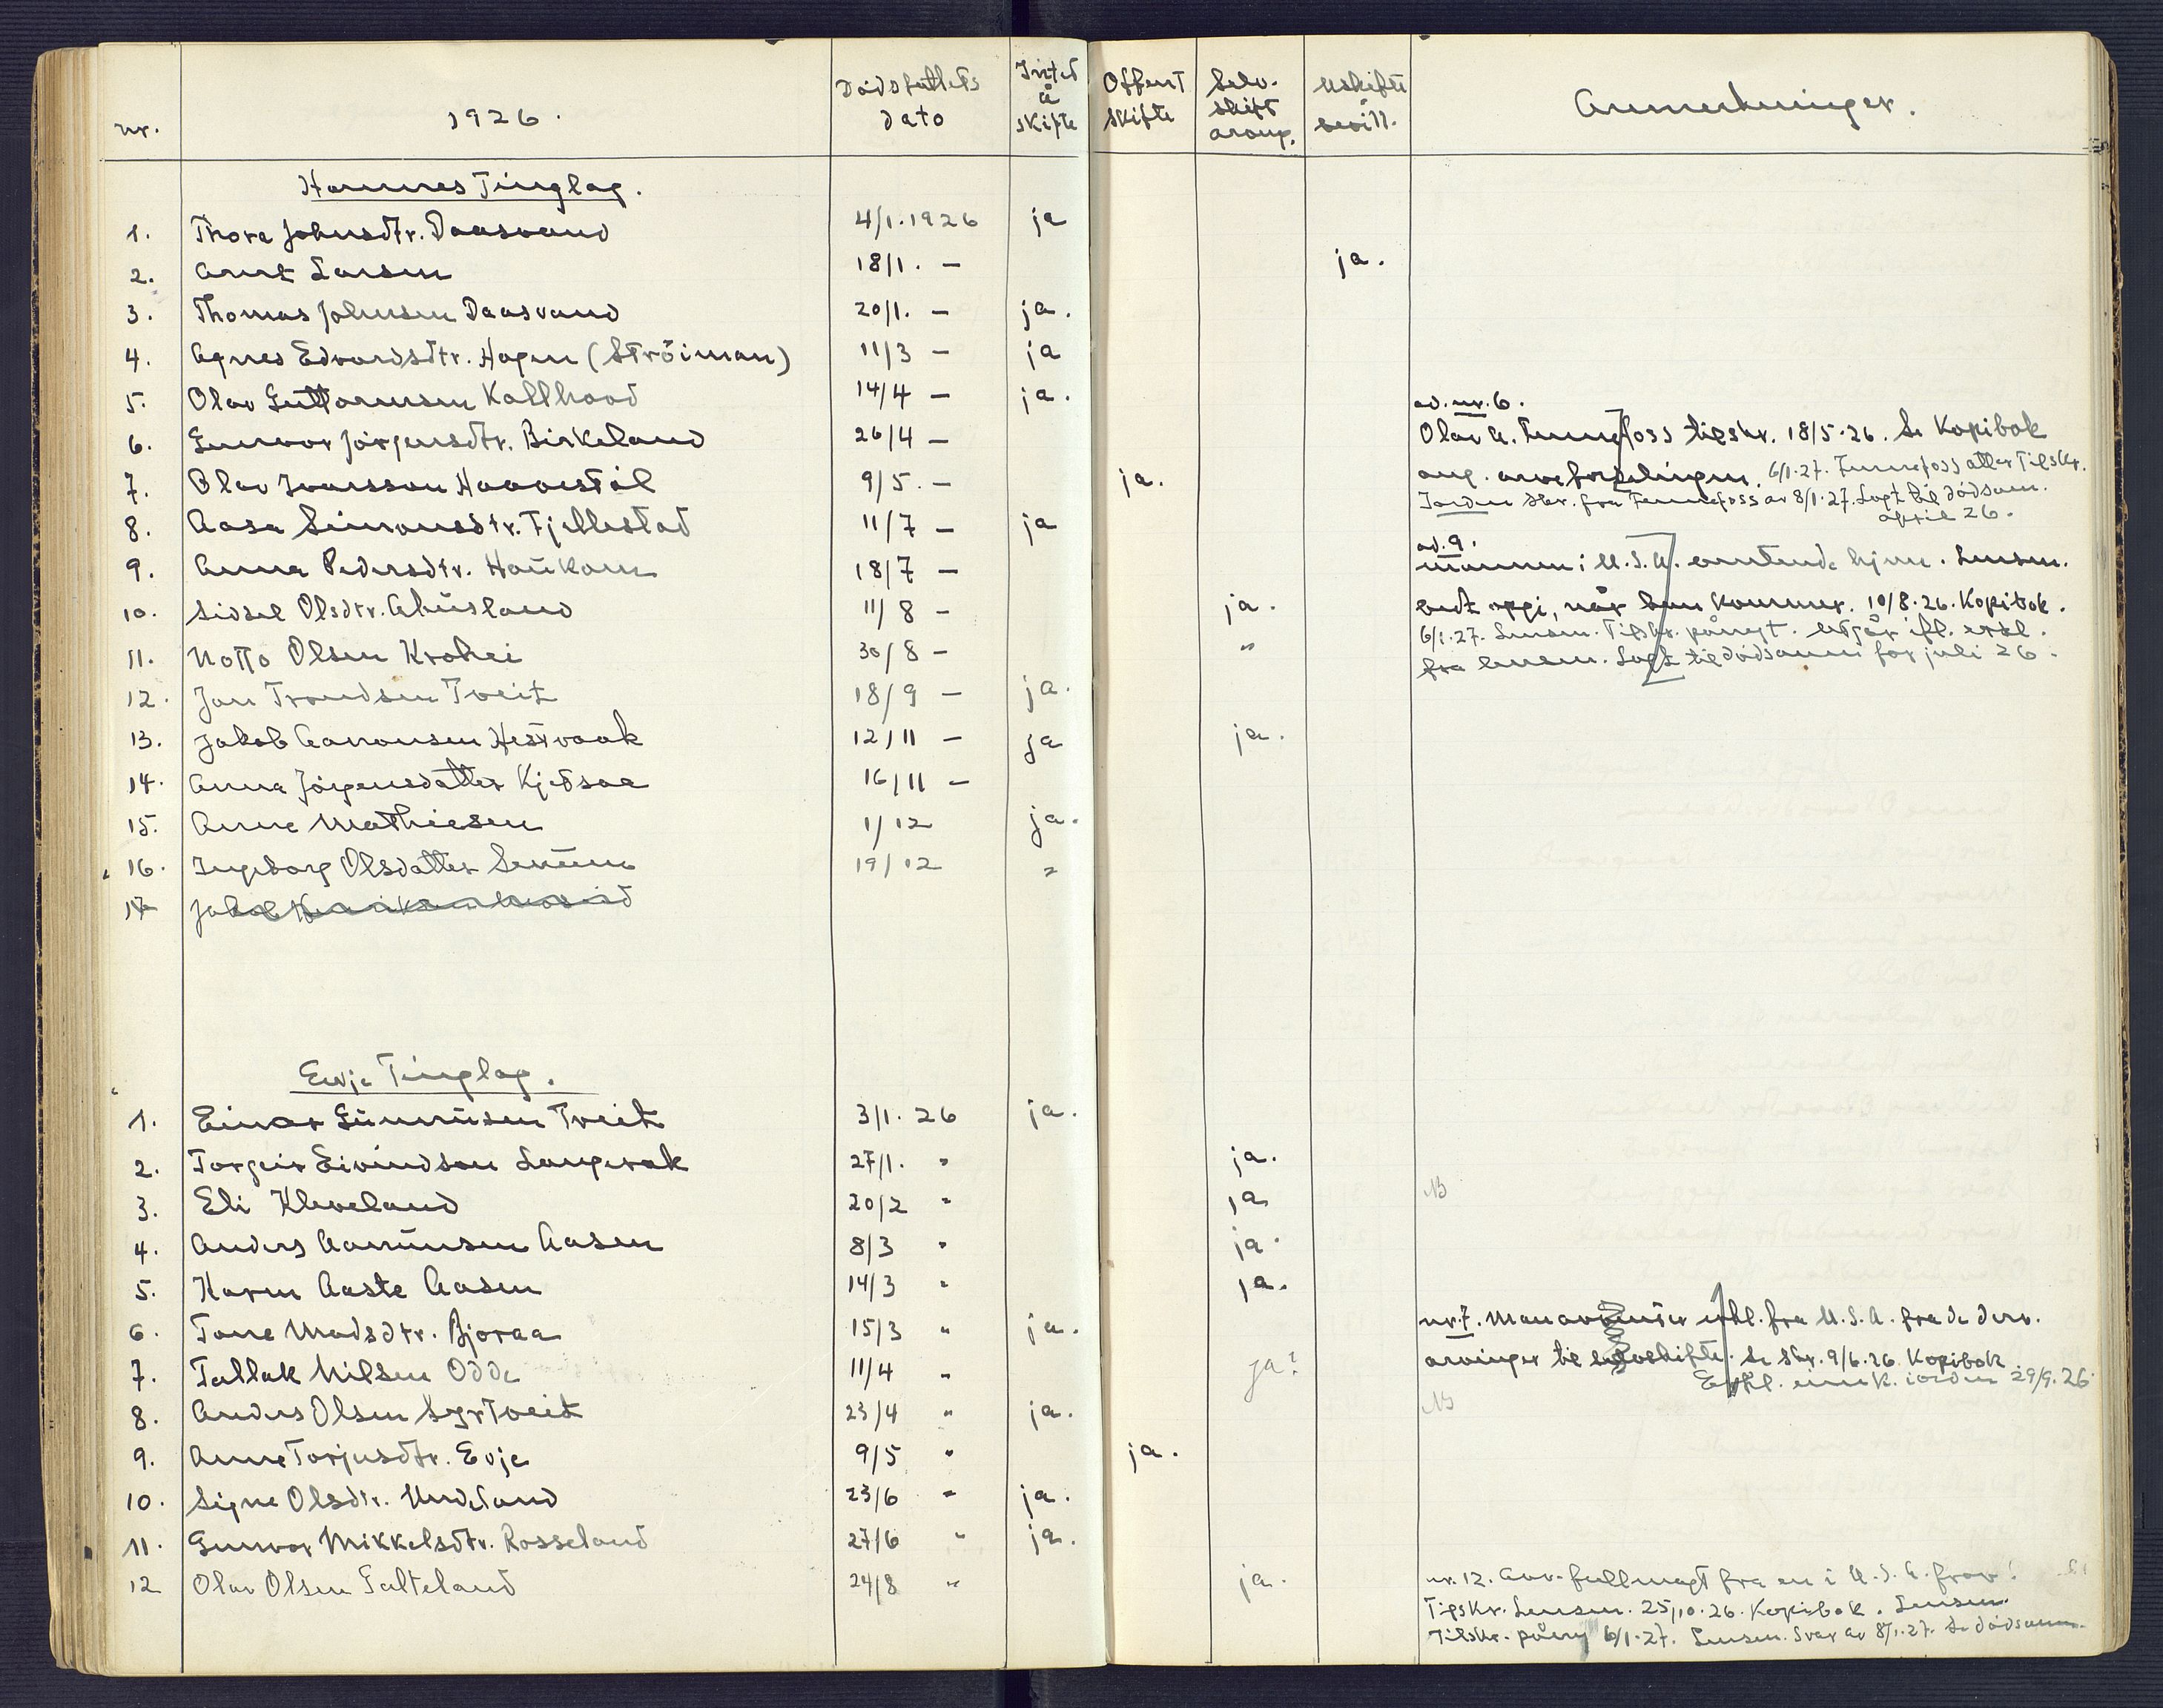 nr. 1926. Dødsfallets dato Intet å skifte Offent skifte Selv. skift arvup. Uskifte bevill. Anmerkninger.
Hornnes Tinglag.
1. Thora Johnsdtr. Daasvand 4/1.1926 ja
2. Arnt Larsen 18/1. — ja.
3. Thomas Johnsen Daasvand 20/1. — ja.
4. Agnes Edvardsdtr. Hagen (Ströiman) 11/3 — ja
5. Olav Guttormsen Kallhovd 14/4 — ja.
6. Gunvor Jörgensdtr. Birkeland 26/4 —
7. Olav Ivarsson Haavestöl 9/5. — ja.
8. Aasa Simonsdtr. Fjellestad 11/7 — ja
9. Anna Pedersdtr. Haukom 18/7 —
10. Sidsel Olsdtr. Abusland 11/8 — ja.
11. Notto Olsen Krohei 30/8 — "
12. Jon Trondsen Tveit 18/9 — ja.
13. Jakob Aanonsen Hestvaak 12/11 — ja ja.
14. Anna Jörgensdatter Kjetsaa 16/11 —
15. Anne Mathiesen 1/12 ja.
16. Ingeborg Olsdatter Senum 19/12 "
17 Jakob
ad. nr. 6.
Olav A. Fennefoss tilskr. 18/5.26. Se Kopibok
ang. arvefordelingen. 6/1.27. Fennefoss atter Tilskr.
Jorden skr. fra Fennefoss av 8/1.27. Lagt til dödsanm.
april 26.
ad. 9.
mannen i U.S.A. ventende hjem. Lensm.
bedt oppi, når han kommer. 10/8.26. Kopibok.
6/1.27. Lensm. Tilskr. pånyt. Utgår ifl. erkl.
fra lensm. Lagt til dödsanm. for juli 26.
Evje Tinglag.
1. Einar Gunnusen Tveit 3/1. 26 ja.
2. Torgeir Eivindson Langerak 27/1. " ja.
3. Eli Kleveland 20/2 " ja NB
4. Anders Aanunsen Aasen 8/3 " ja.
5. Karen Aaste Aasen 14/3 " ja.
6. Tone Madsdtr. Bjoraa 15/3 " ja.
7. Tallak Nilsen Odde 11/4 " ja?
8. Anders Olsen Syrtveit 23/4 " ja. NB
9. Anne Torjusdtr. Evje 9/5 " ja.
10. Signe Olsdtr. Uudeland 23/6 " ja.
11. Gunvor Mikkelsdtr. Rosseland 27/6 " ja.
12 Olav Olsen Galteland 24/8 " ja.
nr. 7. Man avventer erkl. fra U.S.A. fra de derv.
arvinger til selvskifte. Se skr. 9/6.26. Kopibok
Erkl. innk. 29/9.26
nr. 12. Arv. fullmagt fra en i U.S.A.
Tilskr. Lensm. 25/10.26. Kopibok. Lensm.
Tilskr. påny 6/1.27. Lensm. Svar av 8/1.27. Se dödsanm.